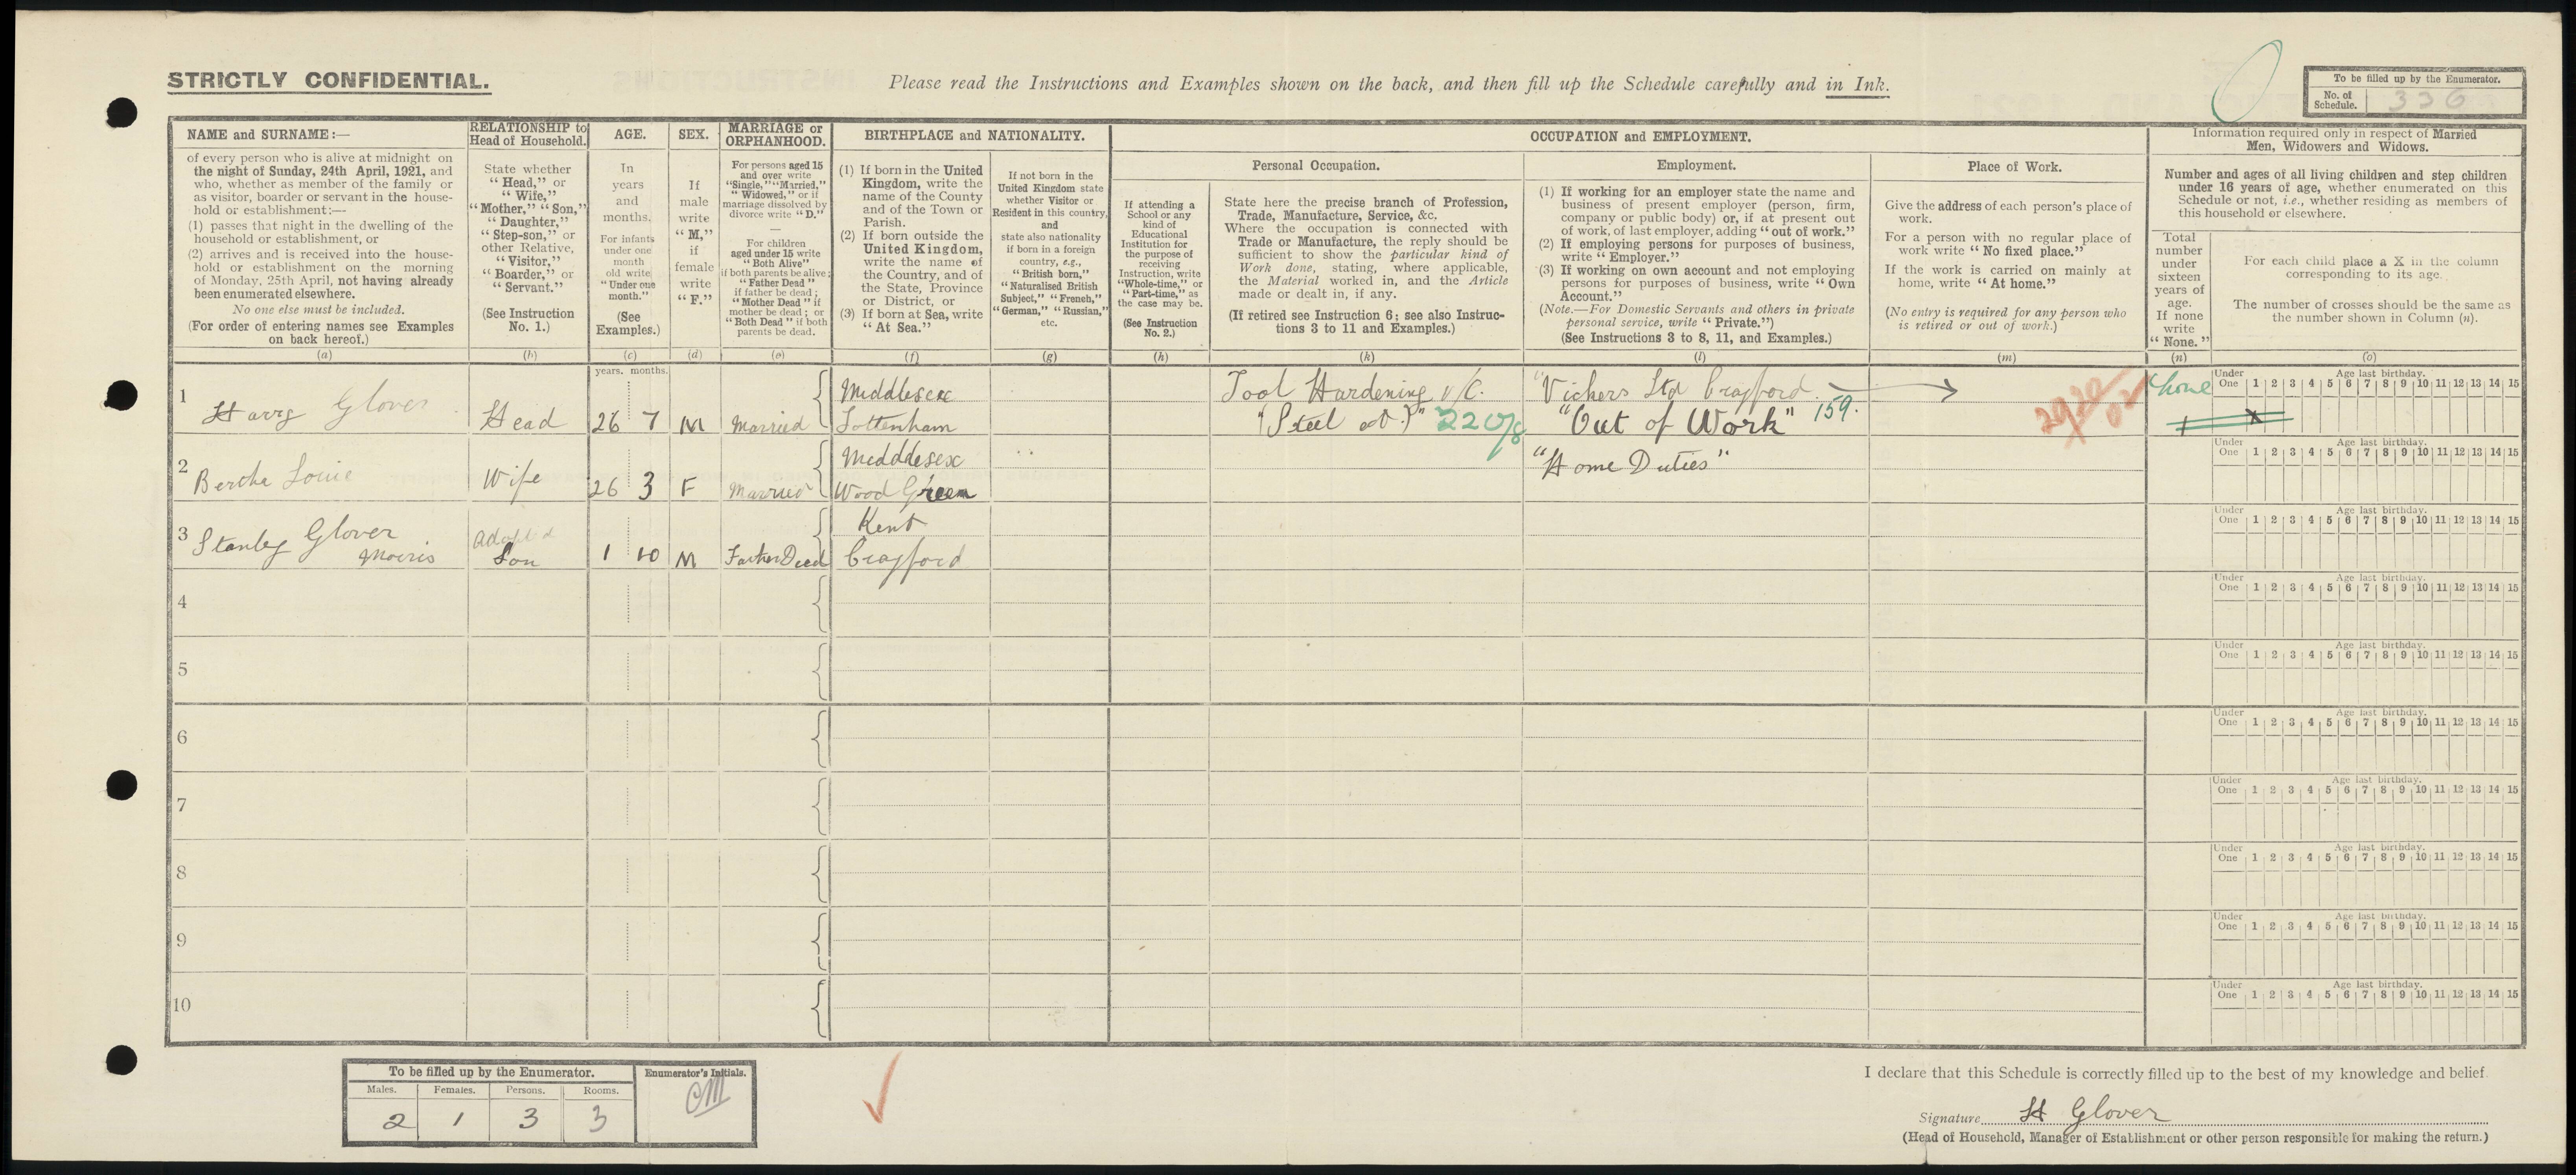 STRICTLY CONFIDENTIAL.
Please read the Instructions and Examples shown on the back, and then fill up the Schedule carefully and in Ink.
To be filled up by the Enumerator.
No. of Schedule. 336
NAME and SURNAME:—
of every person who is alive at midnight on
the night of Sunday, 24th April, 1921, and
who, whether as member of the family or
as visitor, boarder or servant in the house-
hold or establishment:—
(1) passes that night in the dwelling of the
household or establishment, or
(2) arrives and is received into the house-
hold or establishment on the morning
of Monday, 25th April, not having already
been enumerated elsewhere.
No one else must be included.
(For order of entering names see Examples
on back hereof.)
(a)
RELATIONSHIP to
Head of Household.
State whether
"Head," or
"Wife,"
"Mother," "Son,"
"Daughter,"
"Step-son," or
other Relative,
"Visitor,"
"Boarder," or
"Servant."
(See Instruction
No. 1.)
(b)
AGE.
In
years
and
months.
For infants
under one
month
old write
"Under one
month."
(See
Examples.)
(c)
SEX.
If
male
write
"M,"
if
female
write
"F."
(d)
MARRIAGE or
ORPHANHOOD.
For persons aged 15
and over write
"Single," "Married,"
"Widowed," or if
marriage dissolved by
divorce write "D."
—
For children
aged under 15 write
"Both Alive"
if both parents be alive;
"Father Dead"
if father be dead;
"Mother Dead" if
mother be dead; or
"Both Dead" if both
parents be dead.
(e)
BIRTHPLACE and NATIONALITY.
(1) If born in the United
Kingdom, write the
name of the County
and of the Town or
Parish.
(2) If born outside the
United Kingdom,
write the name of
the Country, and of
the State, Province
or District, or
(3) If born at Sea, write
"At Sea."
(f)
If not born in the
United Kingdom state
whether Visitor or
Resident in this country,
and
state also nationality
if born in a foreign
country, e.g.,
"British born,"
"Naturalised British
Subject," "French,"
"German," "Russian,"
etc.
(g)
OCCUPATION and EMPLOYMENT.
Personal Occupation.
If attending a
School or any
kind of
Educational
Institution for
the purpose of
receiving
Instruction, write
"Whole-time," or
"Part-time," as
the case may be.
(See Instruction
No. 2.)
(h)
State here the precise branch of Profession,
Trade, Manufacture, Service, &c.
Where the occupation is connected with
Trade or Manufacture, the reply should be
sufficient to show the particular kind of
Work done, stating, where applicable,
the Material worked in, and the Article
made or dealt in, if any.
(If retired see Instruction 6; see also Instruc-
tions 3 to 11 and Examples.)
(k)
Employment.
(1) If working for an employer state the name and
business of present employer (person, firm,
company or public body) or, if at present out
of work, of last employer, adding "out of work."
(2) If employing persons for purposes of business,
write "Employer."
(3) If working on own account and not employing
persons for purposes of business, write "Own
Account."
(Note.—For Domestic Servants and others in private
personal service, write "Private.")
(See Instructions 3 to 8, 11, and Examples.)
(l)
Place of Work.
Give the address of each person's place of
work.
For a person with no regular place of
work write "No fixed place."
If the work is carried on mainly at
home, write "At home."
(No entry is required for any person who
is retired or out of work.)
(m)
Information required only in respect of Married
Men, Widowers and Widows.
Number and ages of all living children and step children
under 16 years of age, whether enumerated on this
Schedule or not, i.e., whether residing as members of
this household or elsewhere.
Total
number
under
sixteen
years of
age.
If none
write
"None."
(n)
For each child place a X in the column
corresponding to its age.
The number of crosses should be the same as
the number shown in Column (n).
(o)
years. months.
Under One Age last birthday. 1 2 3 4 5 6 7 8 9 10 11 12 13 14 15
1 Harry Glover Head 26 7 M Married Middlesex Tottenham
Tool Hardening
220/8
"Vickers Ltd Crayford
"Out of Work" 159.
None
1 X
2 Bertha Louie Wife 26 3 F Married Midddesex Wood Green "Home Duties"
Under One Age last birthday. 1 2 3 4 5 6 7 8 9 10 11 12 13 14 15
3 Stanley Glover Morris Adopted Son 1 10 M Father Dead Kent Crayford
Under One Age last birthday. 1 2 3 4 5 6 7 8 9 10 11 12 13 14 15
4
Under One Age last birthday. 1 2 3 4 5 6 7 8 9 10 11 12 13 14 15
5
Under One Age last birthday. 1 2 3 4 5 6 7 8 9 10 11 12 13 14 15
6
Under One Age last birthday. 1 2 3 4 5 6 7 8 9 10 11 12 13 14 15
7
Under One Age last birthday. 1 2 3 4 5 6 7 8 9 10 11 12 13 14 15
8
Under One Age last birthday. 1 2 3 4 5 6 7 8 9 10 11 12 13 14 15
9
Under One Age last birthday. 1 2 3 4 5 6 7 8 9 10 11 12 13 14 15
10
Under One Age last birthday. 1 2 3 4 5 6 7 8 9 10 11 12 13 14 15
To be filled up by the Enumerator.
Males. Females. Persons. Rooms.
2 1 3 3
Enumerator's Initials.
CM
I declare that this Schedule is correctly filled up to the best of my knowledge and belief.
Signature H Glover
(Head of Household, Manager of Establishment or other person responsible for making the return.)